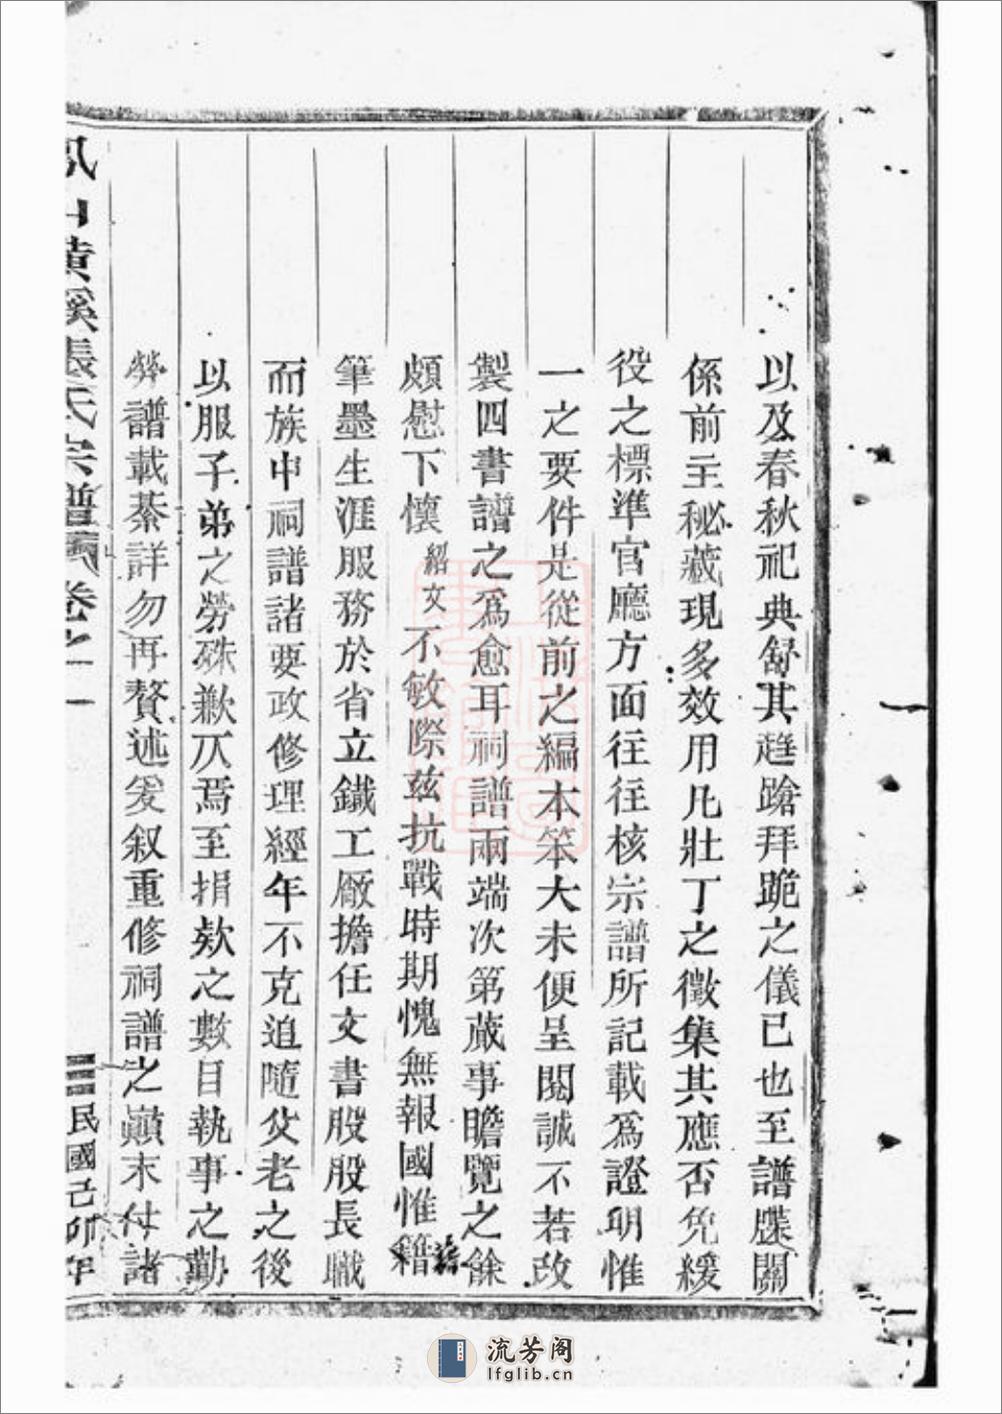 以及春秋祀典舒其趨蹌拜跪之儀已也至譜牒關
係前主秘藏現多效用凡壯丁之徵集其應否免緩
役之標準官廳方面往往核宗譜所記載為證明惟
一之要件是從前之編本笨大未便呈閱誠不若改
製四書譜之為愈耳祠譜兩端次第蕆事瞻覽之餘
頗慰下懷紹文不敏際茲抗戰時期愧無報國惟藉
筆墨生涯服務於省立鐵工廠擔任文書股股長職
而族中祠譜諸要政修理經年不克追隨父老之後
以服子弟之勞殊歉仄焉至捐欵之數目執事之勤
勞譜載綦詳勿再贅述爰叙重修祠譜之巔末付諸
鳳山黃溪張氏宗譜 卷之一
民國己卯年
流芳阁
lfglib.cn